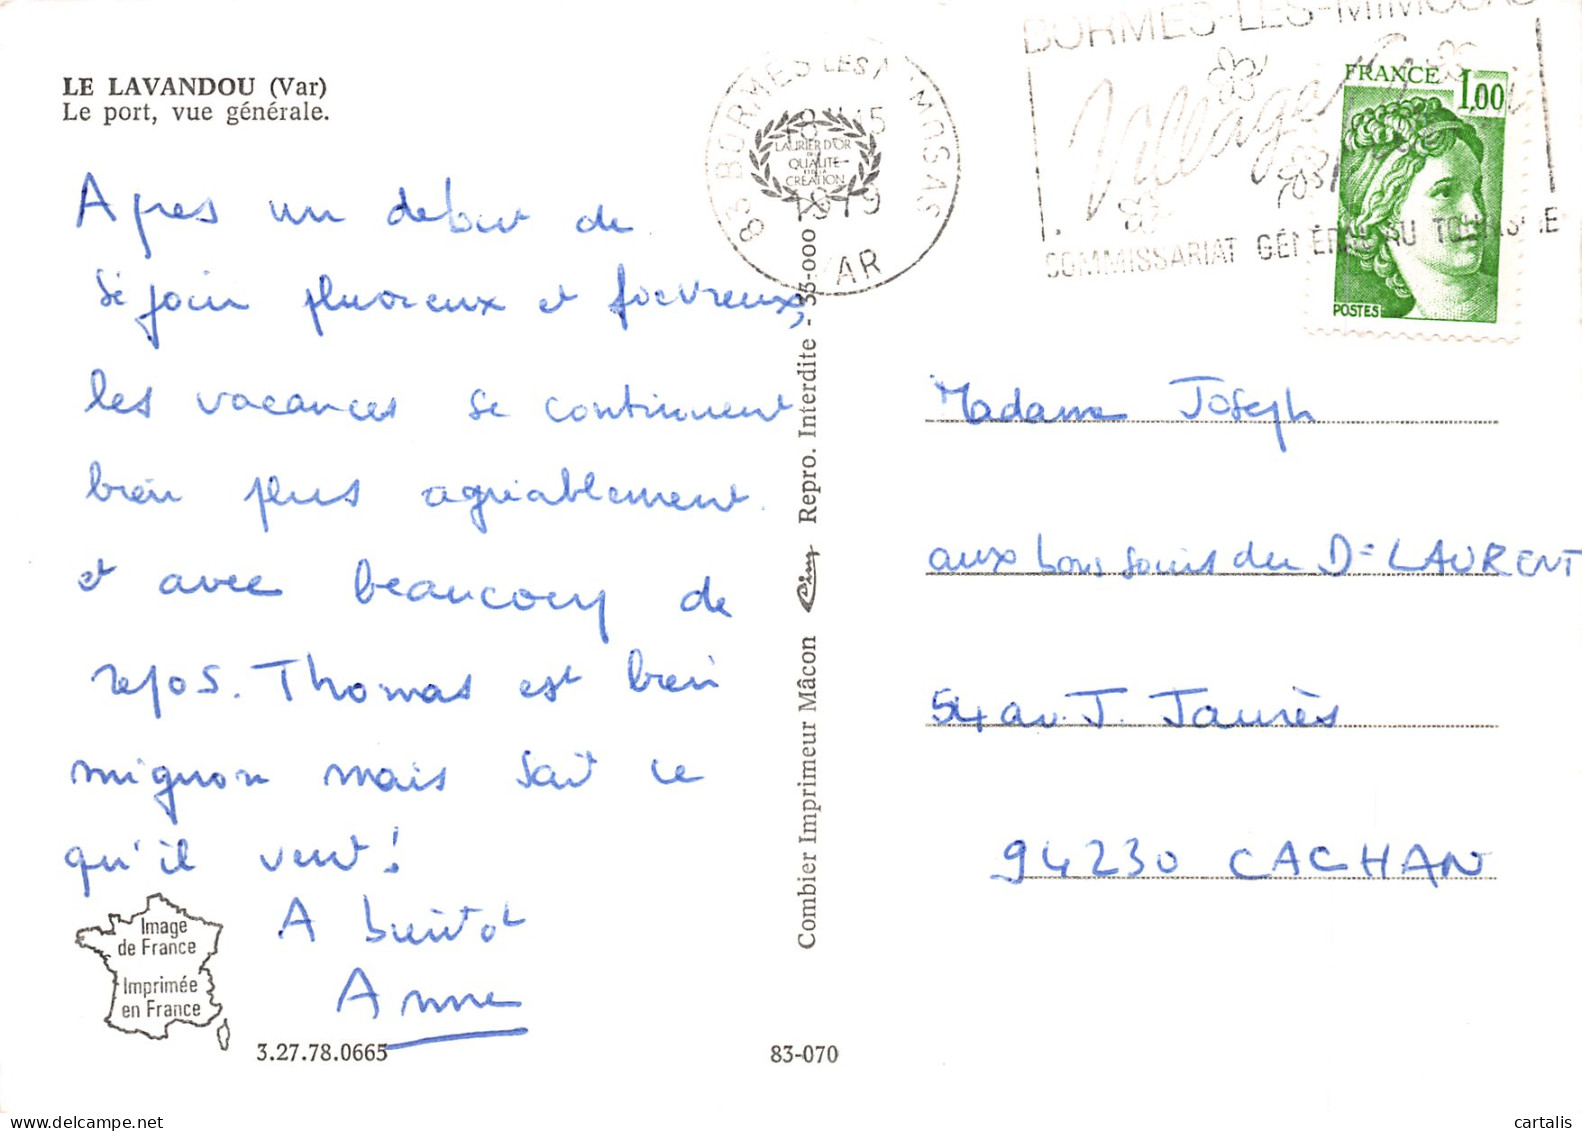 LE LAVANDOU (Var)
Le port, vue générale.
Apres un debut de
séjour pluvieux et fievreux,
les vacances se continuent
bien plus agréablement
et avec beaucoup de
repos. Thomas est bien
mignon mais sait ce
qu'il veut!
A bientot
Anne
Image
de France
Imprimée
en France
3.27.78.0665
83-070
Combier Imprimeur Mâcon Cim Repro. Interdite - 35-000
LAURIER D'OR
QUALITE
CREATION
83 BORMES LES MIMOSAS
18 15
1979
VAR
BORMES-LES-MIMOSAS
Village
COMMISSARIAT GÉNÉRAL AU TOURISME
FRANCE 1,00
POSTES
Madame Joseph
aux bons soins du Dr LAURENT
54 av. J. Jaurès
94230 CACHAN
cartalis
www.delcampe.net